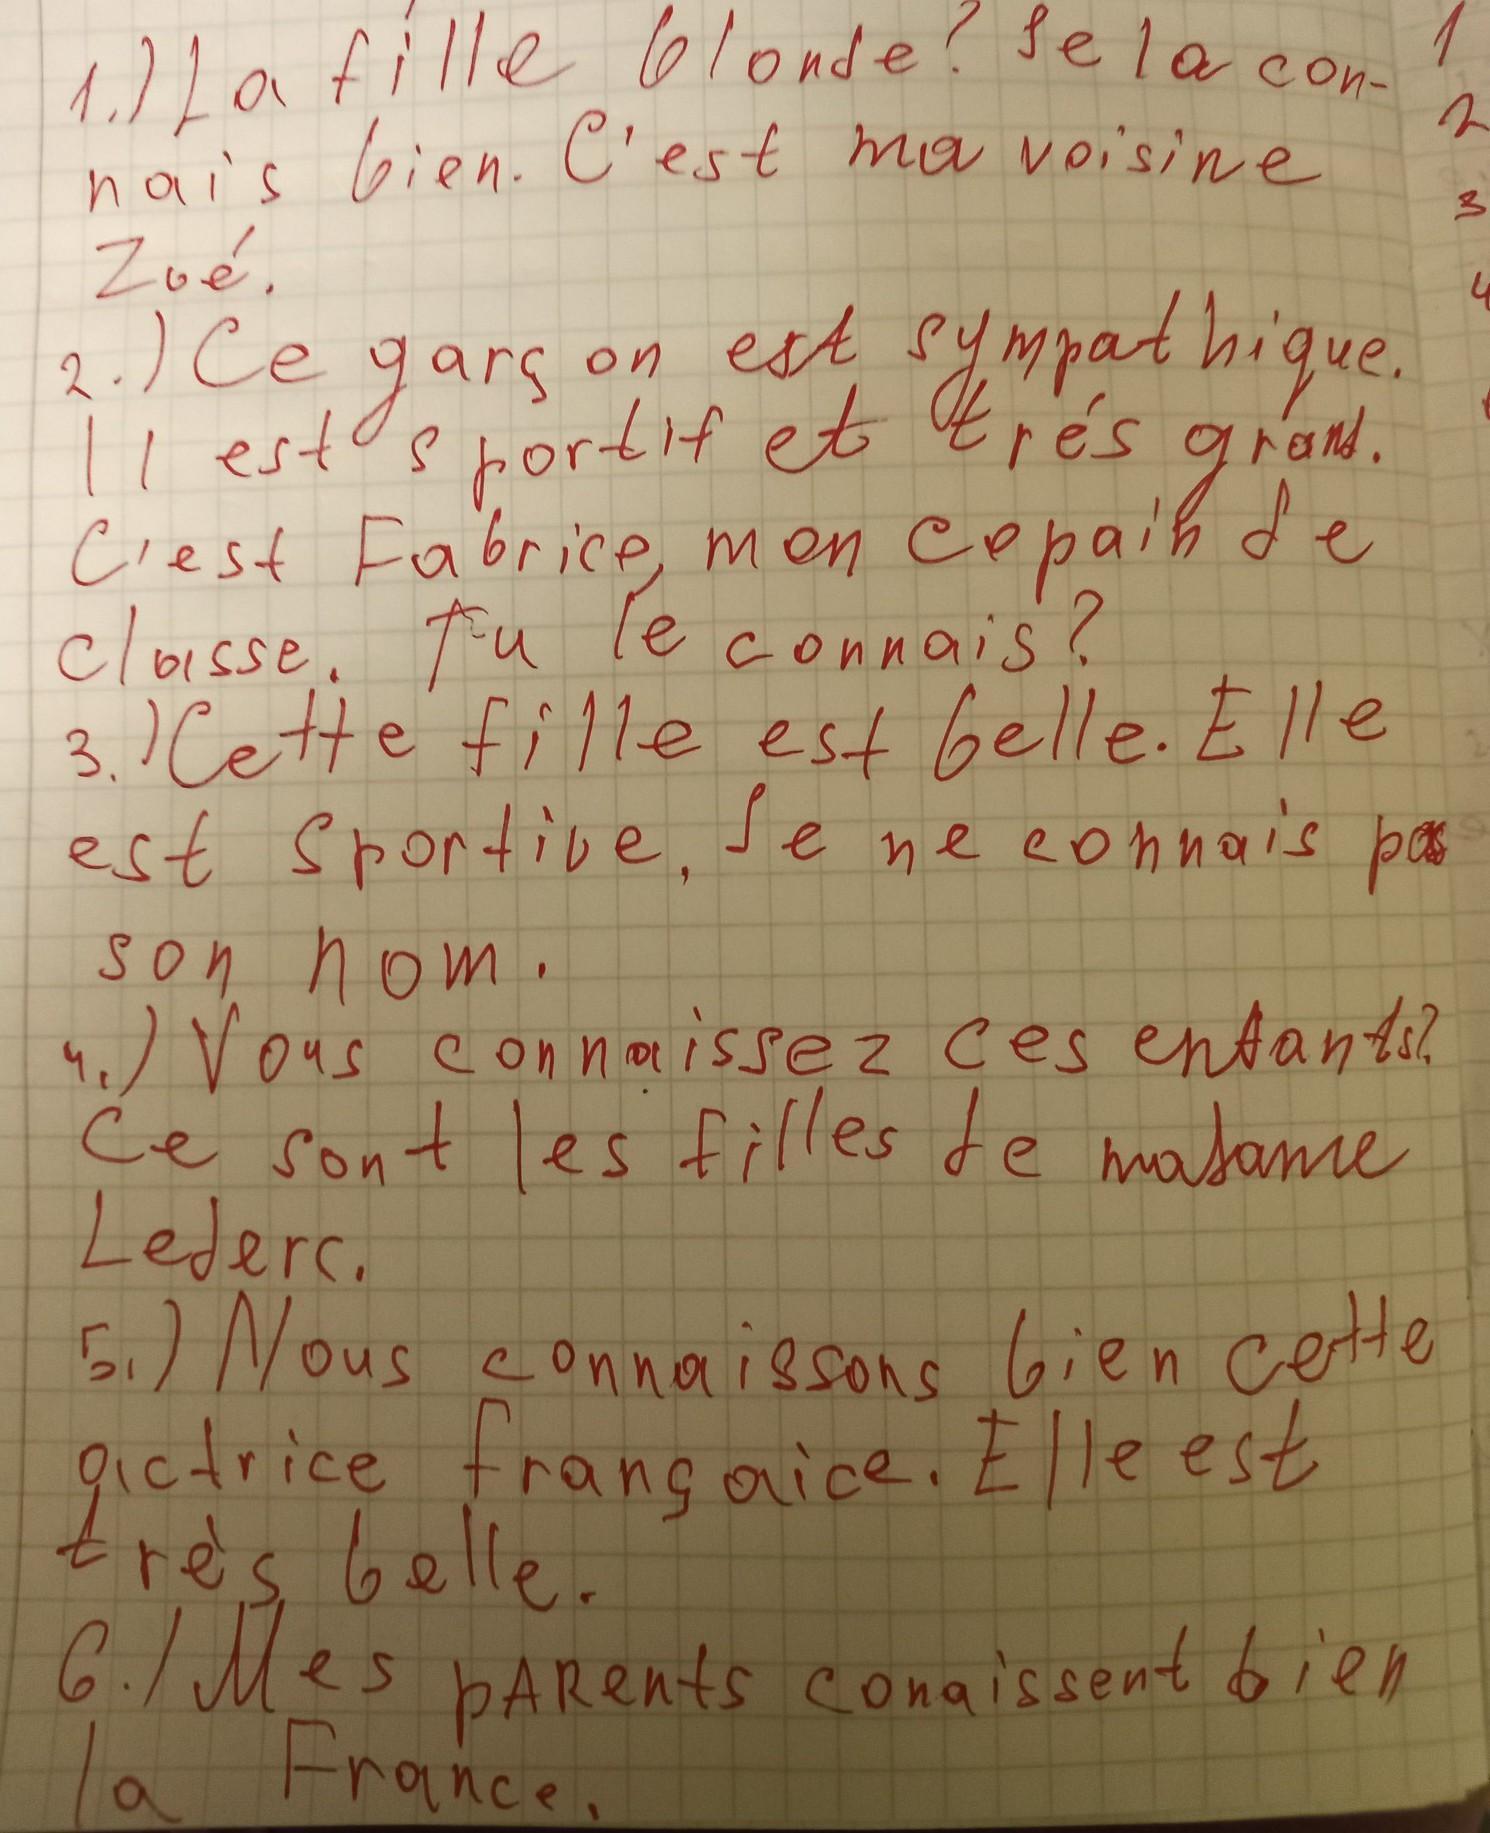 1.) La fille blonde? Je la con-
nais bien. C'est ma voisine
Zoé.
2.) Ce garçon est sympathique.
Il est sportif et trés grand.
C'est Fabrice, mon copain de
classe. Tu le connais?
3.) Cette fille est belle. Elle
est sportive. Je ne connais pas
son nom.
4.) Vous connaissez ces enfants?
Ce sont les filles de madame
Lederc.
5.) Nous connaissons bien cette
actrice françaice. Elle est
très belle.
6.) Mes pARents conaissent bien
la France.
1
2
3
4